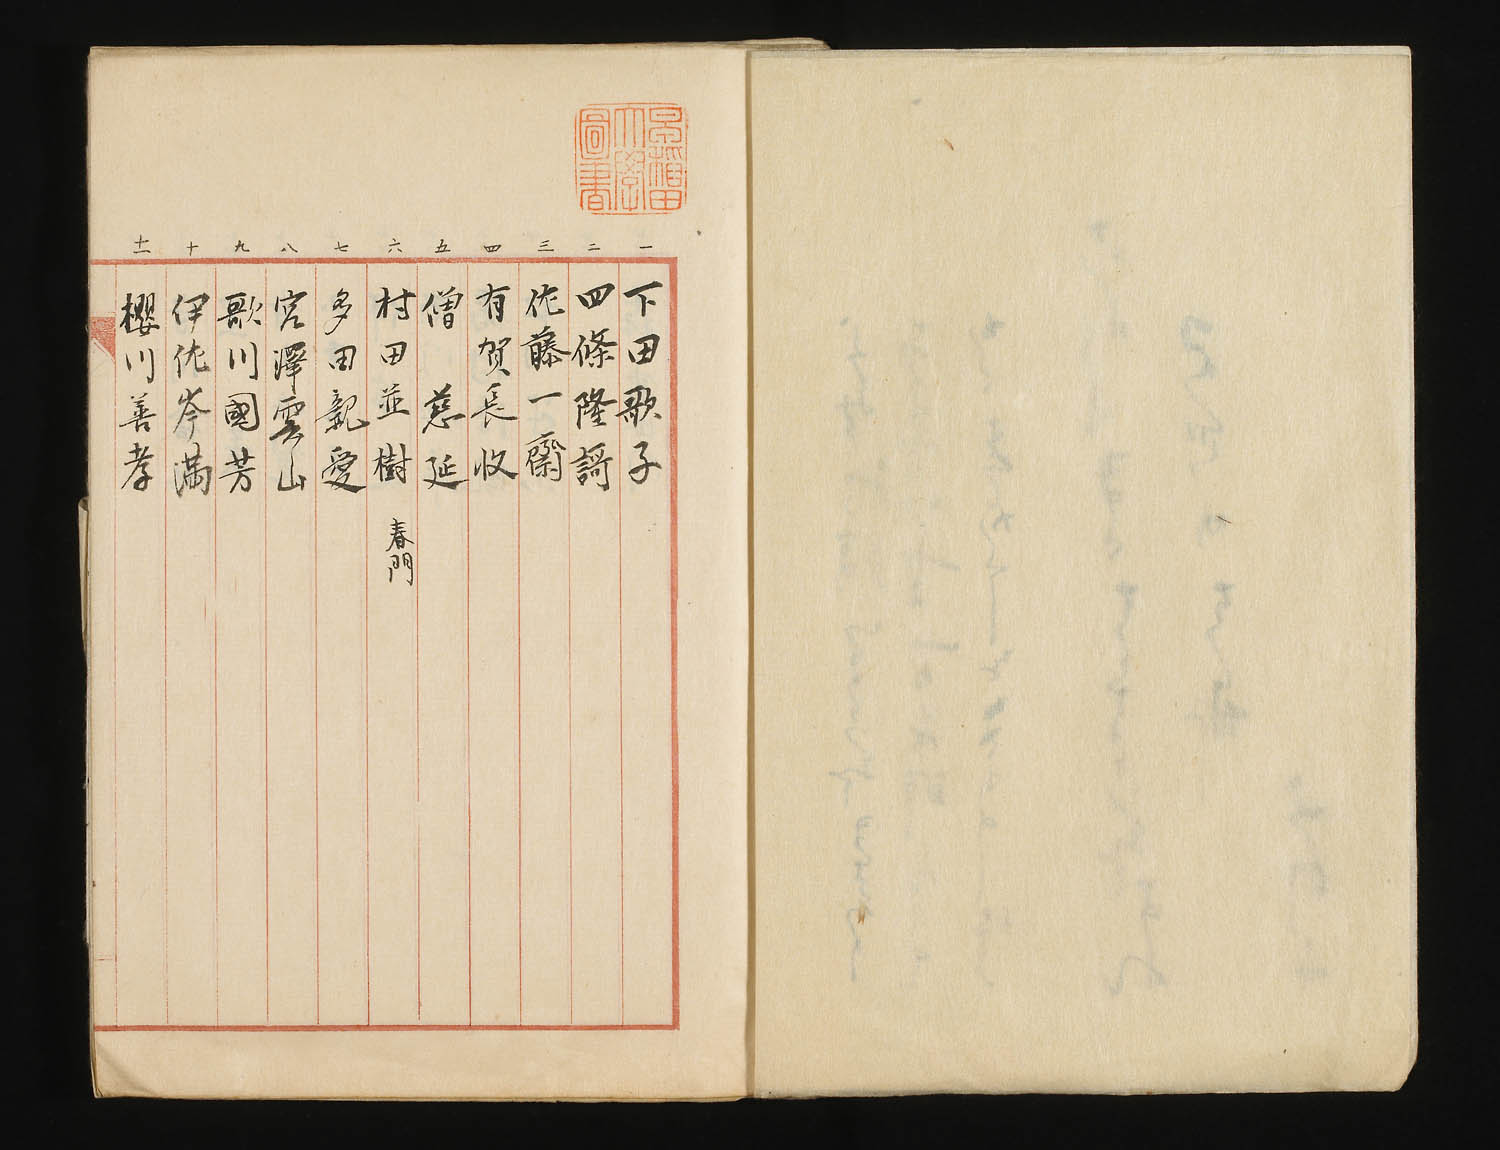 早稲田
大學
圖書
一 下田歌子
二 四條隆謌
三 佐藤一齋
四 有賀長收
五 僧 慈延
六 村田並樹 春門
七 多田親愛
八 宮澤雲山
九 歌川國芳
十 伊佐岑滿
十一 櫻川善孝